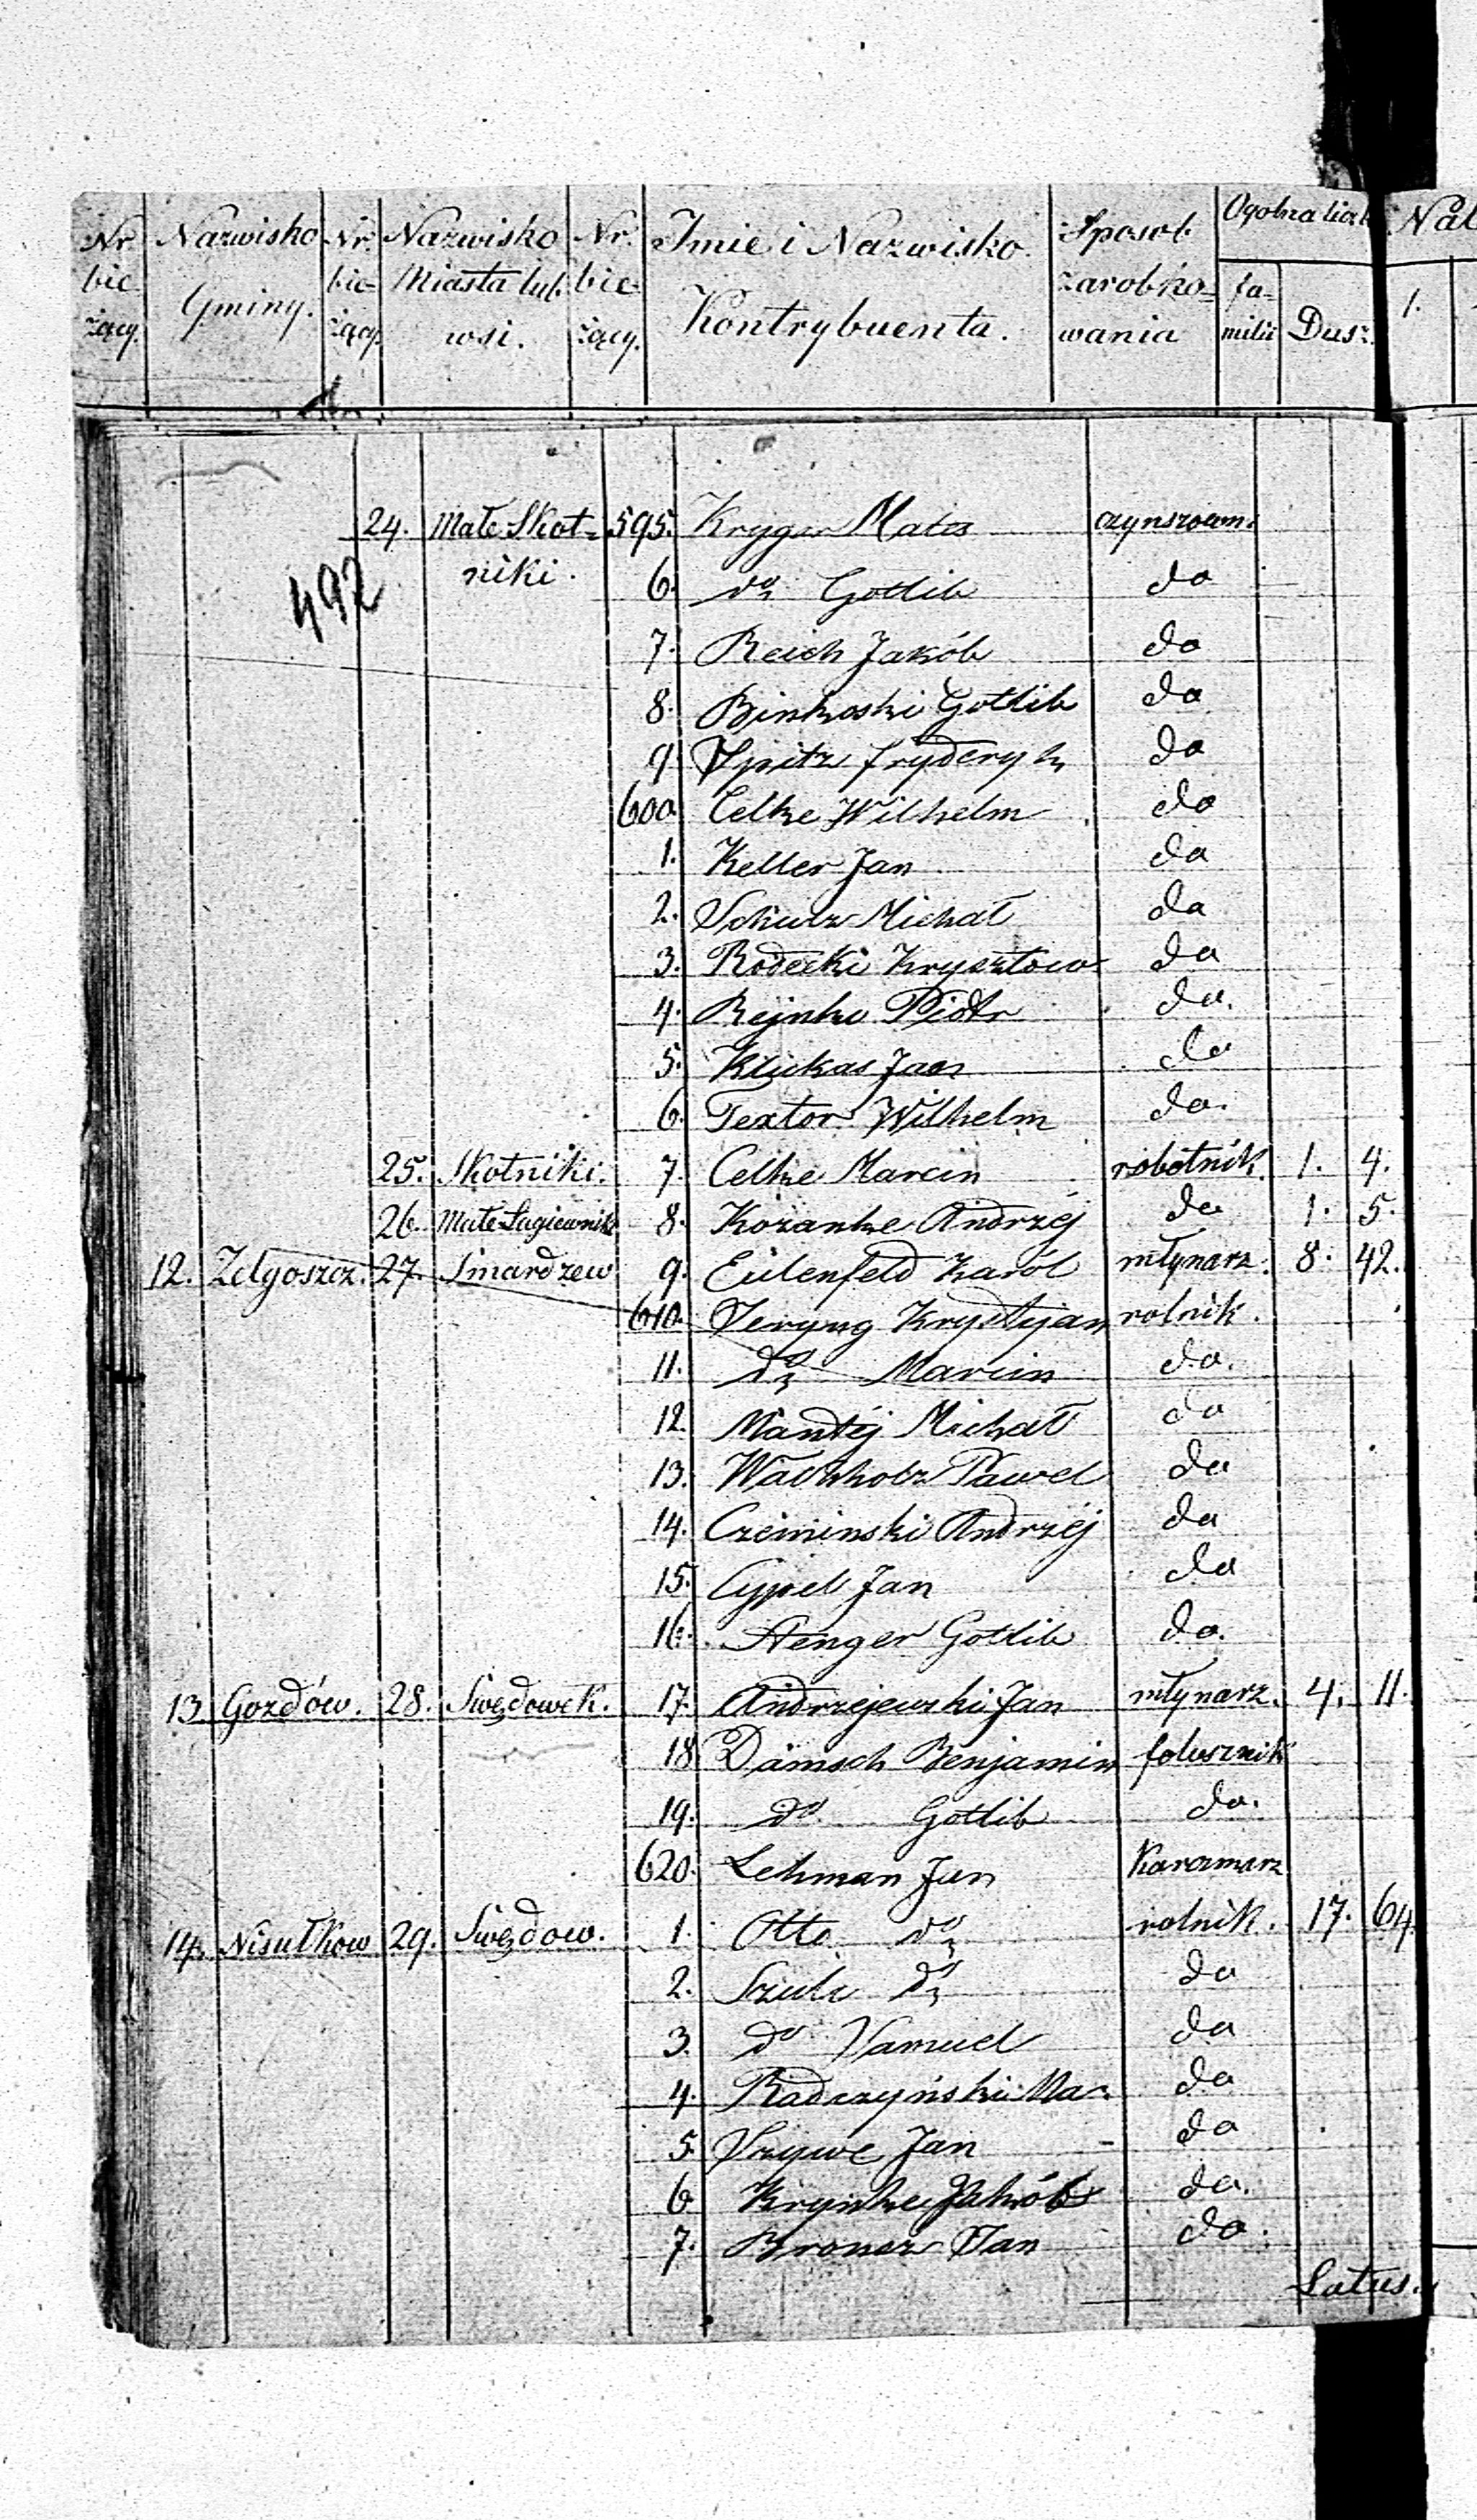 Nr bieżący. Nazwisko Gminy. Nr. bieżący Nazwisko Miasta lub wsi. Nr. bieżący. Imie i Nazwisko Kontrybuenta. Sposob zarobkowania Ogolna liczb familii Dusz. Nal 1.
492
24. Małe Skot= 595. Kryger Mates czynszown.
niki. 6. do Gotlib do
7. Reich Jakób do
8. Binkoski Gotlib do
9 Spitz Fryderyk do
600 Celke Wilhelm do
1. Keller Jan do
2. Schulz Michał do
3. Rodecki Krysztow do
4. Rejnke Piotr do.
5. Klukas Jan do
6. Textor Wilhelm do.
25. Skotniki. 7. Celke Marcin robotnik. 1. 4.
26. Małe Łagiewniki 8. Kozanke Andrzéj do 1. 5.
12. Zelgoszcz. 27. Smardzew 9. Eulenfeld Karól młynarz. 8. 42.
610. Seryng Krystyjan rolnik.
11. do Marcin do.
12. Mantéj Michał do
13. Wachholz Paweł do
14. Czeminski Andrzéj do
15. Cypel Jan do
16. Stenger Gotlib do.
13. Gozdów. 28. Swędowek. 17. Andrzejewski Jan młynarz. 4. 11.
18 Dämsch Benjamin folusznik
19. do Gotlib do.
620. Lehman Jan Karczmarz
14. Nisułkow 29. Swędow. 1. Otto do rolnik. 17. 64.
2. Szulc do do
3. do Samuel do
4. Radczyński Ma do
5. Szywe Jan do
6 Krynke Jakób do.
7. Bronsz Jan do.
Latus.